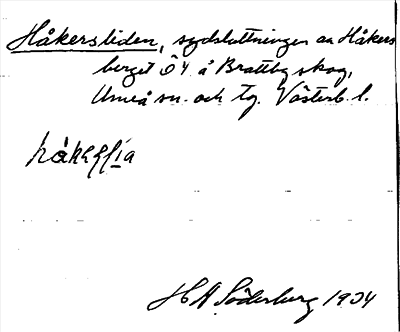 Håkersliden, sydsluttningen av Håkers
berget Ö4 å Brattby skog,
Umeå sn. och tg. Västerb. l.
H A Söderberg 1934